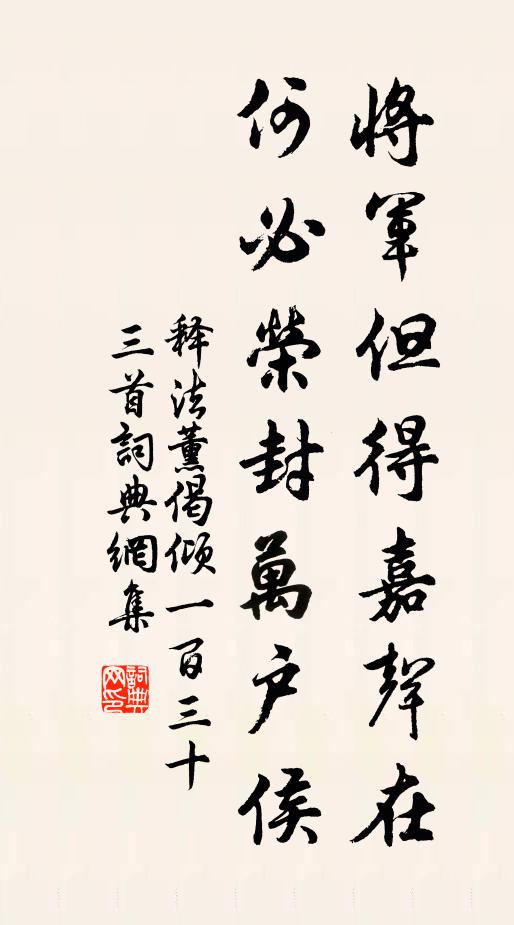 將軍但得嘉聲在
何必榮封萬戶侯
释法薰偈倾一百三十
三首詞典網集
詞典网印